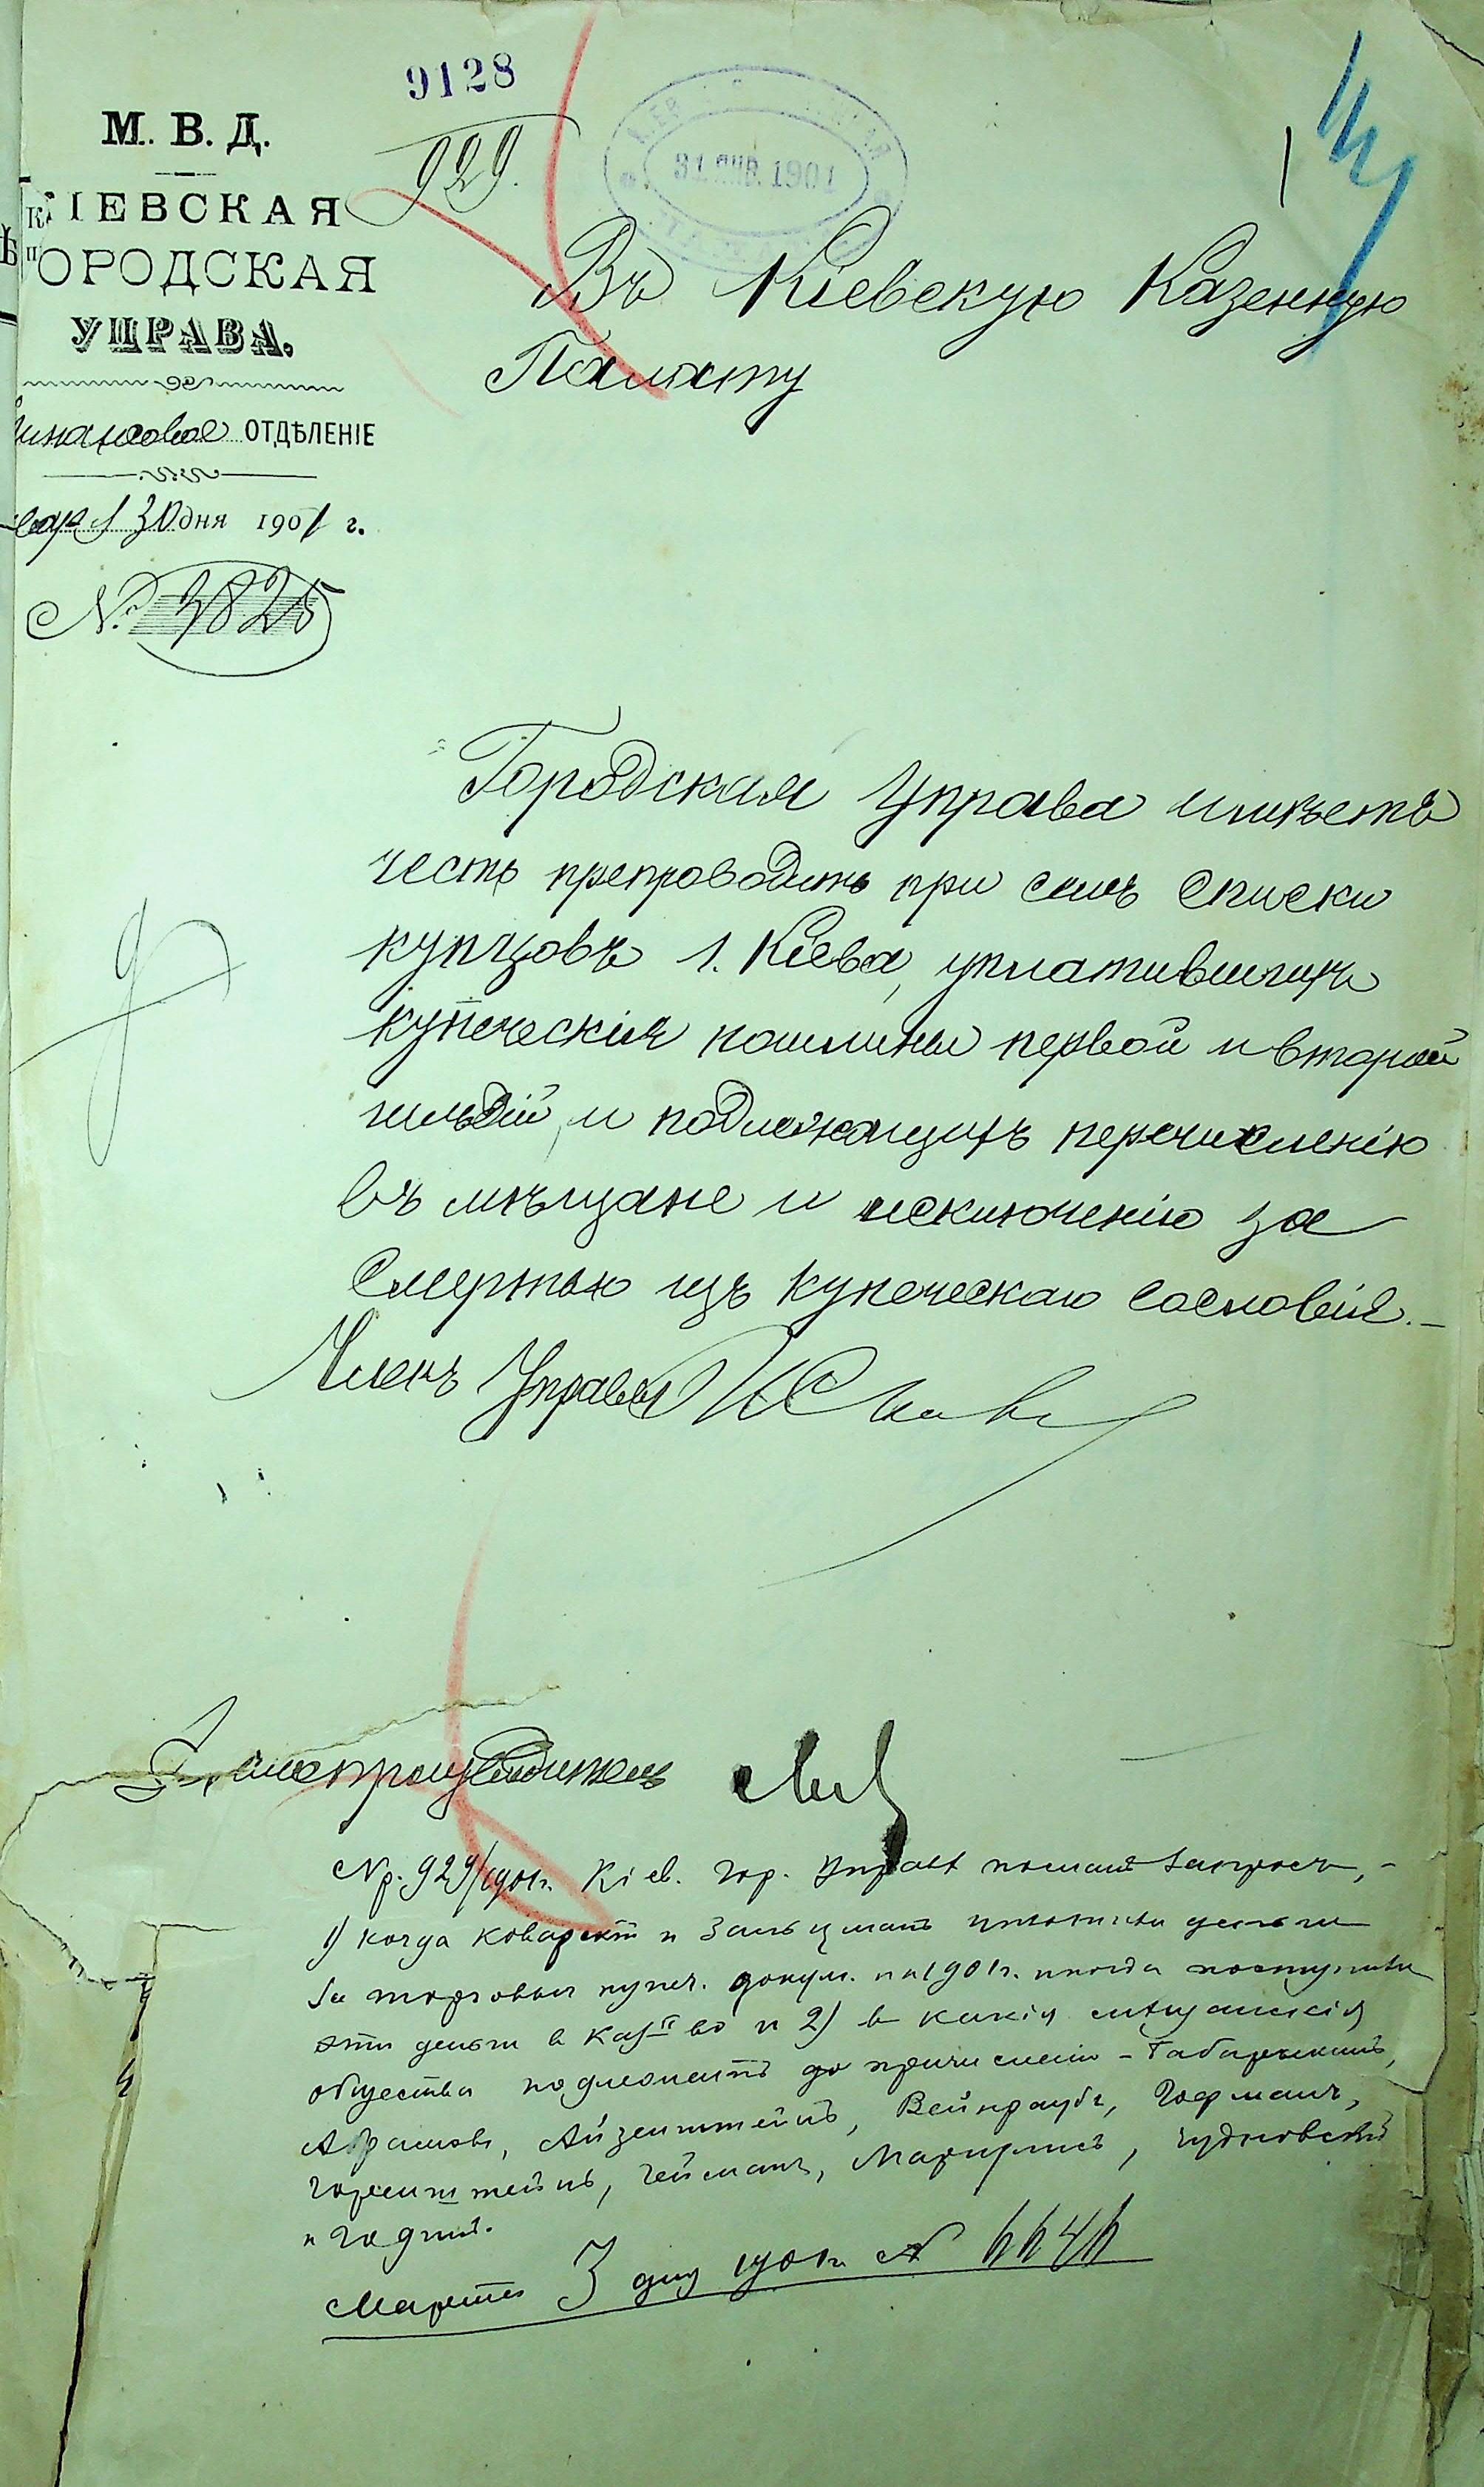 9128
929.
31 ЯНВ. 1901
М. В. Д.
КІЕВСКАЯ
ГОРОДСКАЯ
УПРАВА.
инансовое ОТДѢЛЕНІЕ
30 дня 1901 г.
№ 3825
Въ Кіевскую Казенную
Палату
Городская Управа имѣетъ
честь препроводить при семъ списки
купцовъ г. Кіева, уплатившихъ
купеческія пошлины первой и второй
гильдій, и подлежащихъ перечисленію
въ мѣщане и исключенію за
смертью изъ купеческаго сословія.-
Членъ Управы
Дѣлопроизводитель
Нр. 929/1901г. Кіев. гор. Управѣ посланъ запросъ,-
1) когда и Зальцманъ уплатили деньги
за торговыя купеч. докум. на 1901г. и когда поступили
эти деньги в Каз-во и 2) в какія мѣщанскія
общества подлежатъ до причисленію -
Абрамовъ, Айзенштейнъ, Вейнраубъ, Гофманъ,
Горенштейнъ, Гейманъ, Маргулисъ, Чудновскій
и
Марта 3 дня 1901г. №